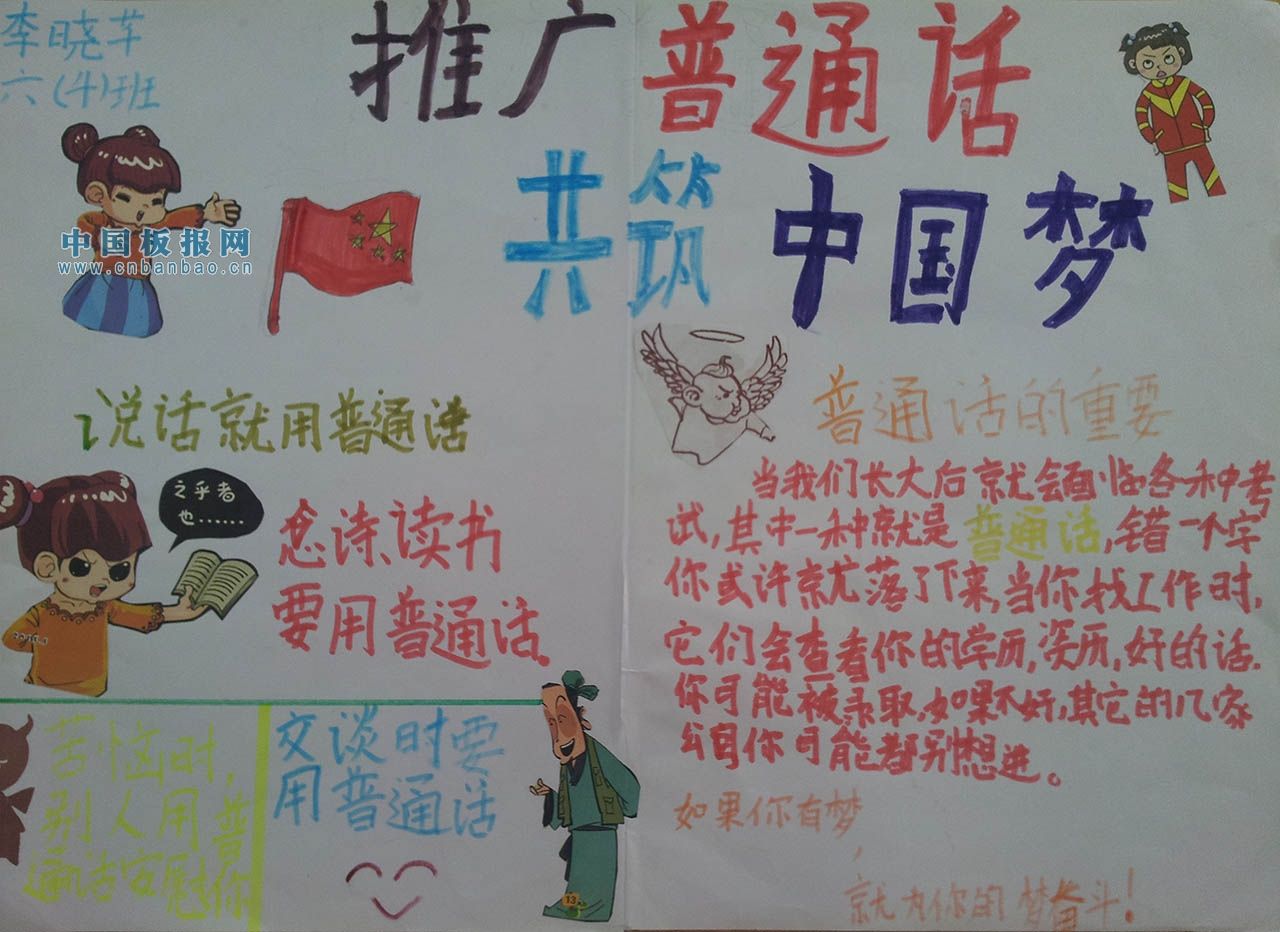 李晓芊
六(4)班
推广普通话
共筑中国梦
中国板报网
www.cnbanbao.cn
说话就用普通话
之乎者
也……
念诗读书
要用普通话.
苦恼时,
别人用普
通话安慰你
交谈时要
用普通话
13
普通话的重要
当我们长大后就会面临各种考
试,其中一种就是普通话,错一个字
你或许就落了下来,当你找工作时,
它们会查看你的学历,资历,好的话.
你可能被录取,如果不好,其它的几家
公司你可能都别想进。
如果你有梦,
就为你的梦奋斗!